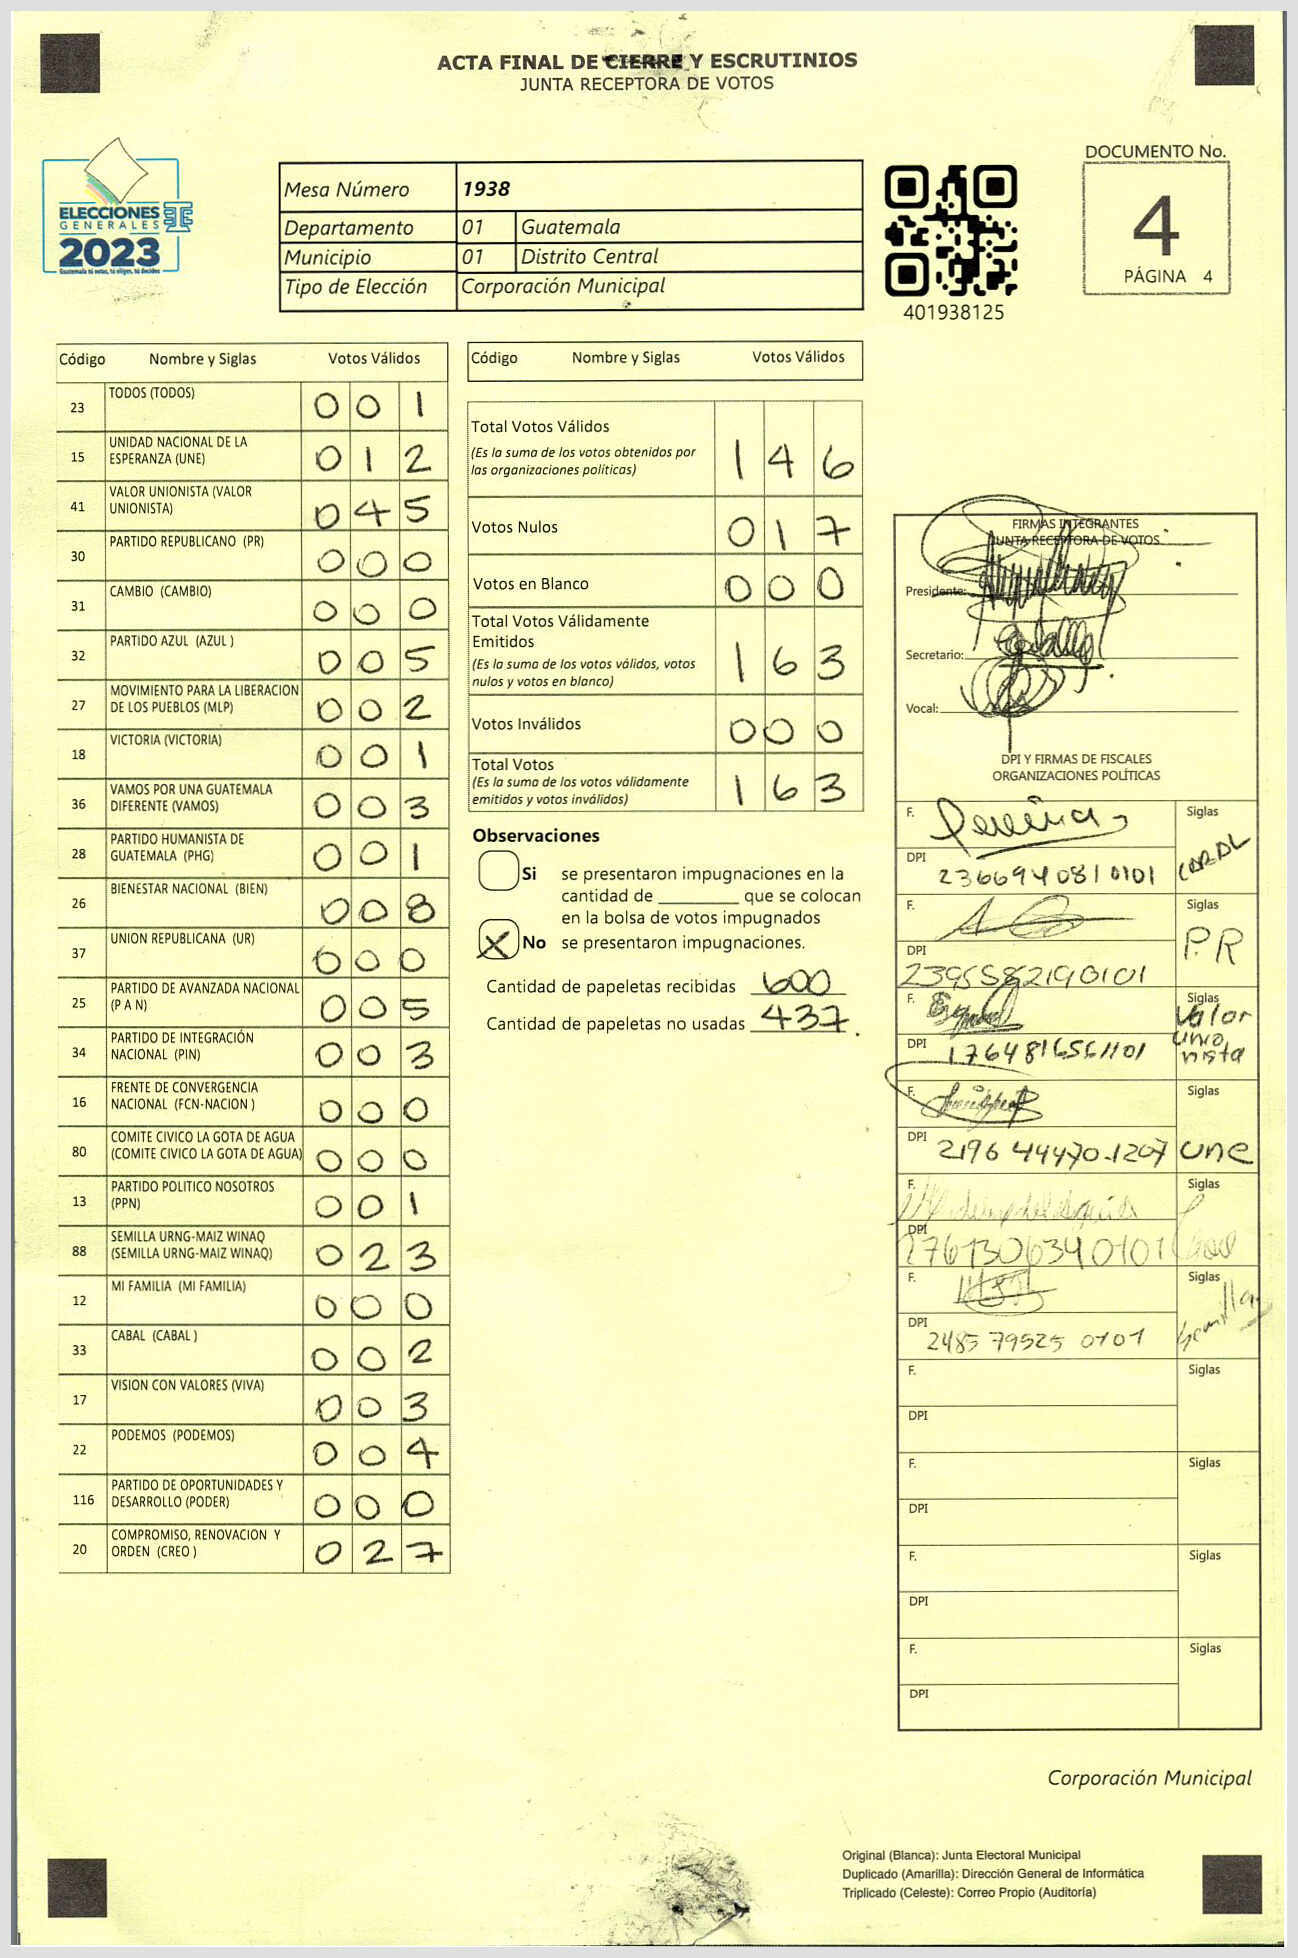 ACTA FINAL DE CIERRE Y ESCRUTINIOS
JUNTA RECEPTORA DE VOTOS
ELECCIONES
GENERALES
2023
Guatemala tú votas, tú eliges, tú decides
Mesa Número 1938
Departamento 01 Guatemala
Municipio 01 Distrito Central
Tipo de Elección Corporación Municipal
401938125
DOCUMENTO No.
4
PÁGINA 4
Código Nombre y Siglas Votos Válidos
23 TODOS (TODOS) 0 0 1
15 UNIDAD NACIONAL DE LA
ESPERANZA (UNE) 0 1 2
41 VALOR UNIONISTA (VALOR
UNIONISTA) 0 4 5
30 PARTIDO REPUBLICANO (PR) 0 0 0
31 CAMBIO (CAMBIO) 0 0 0
32 PARTIDO AZUL (AZUL ) 0 0 5
27 MOVIMIENTO PARA LA LIBERACION
DE LOS PUEBLOS (MLP) 0 0 2
18 VICTORIA (VICTORIA) 0 0 1
36 VAMOS POR UNA GUATEMALA
DIFERENTE (VAMOS) 0 0 3
28 PARTIDO HUMANISTA DE
GUATEMALA (PHG) 0 0 1
26 BIENESTAR NACIONAL (BIEN) 0 0 8
37 UNION REPUBLICANA (UR) 0 0 0
25 PARTIDO DE AVANZADA NACIONAL
(P A N) 0 0 5
34 PARTIDO DE INTEGRACIÓN
NACIONAL (PIN) 0 0 3
16 FRENTE DE CONVERGENCIA
NACIONAL (FCN-NACION ) 0 0 0
80 COMITE CIVICO LA GOTA DE AGUA
(COMITE CIVICO LA GOTA DE AGUA) 0 0 0
13 PARTIDO POLITICO NOSOTROS
(PPN) 0 0 1
88 SEMILLA URNG-MAIZ WINAQ
(SEMILLA URNG-MAIZ WINAQ) 0 2 3
12 MI FAMILIA (MI FAMILIA) 0 0 0
33 CABAL (CABAL ) 0 0 2
17 VISION CON VALORES (VIVA) 0 0 3
22 PODEMOS (PODEMOS) 0 0 4
116 PARTIDO DE OPORTUNIDADES Y
DESARROLLO (PODER) 0 0 0
20 COMPROMISO, RENOVACION Y
ORDEN (CREO ) 0 2 7
Código Nombre y Siglas Votos Válidos
Total Votos Válidos
(Es la suma de los votos obtenidos por
las organizaciones políticas) 1 4 6
Votos Nulos 0 1 7
Votos en Blanco 0 0 0
Total Votos Válidamente
Emitidos
(Es la suma de los votos válidos, votos
nulos y votos en blanco) 1 6 3
Votos Inválidos 0 0 0
Total Votos
(Es la suma de los votos válidamente
emitidos y votos inválidos) 1 6 3
Observaciones
Si se presentaron impugnaciones en la
cantidad de ________ que se colocan
en la bolsa de votos impugnados
X No se presentaron impugnaciones.
Cantidad de papeletas recibidas 600
Cantidad de papeletas no usadas 437.
FIRMAS INTEGRANTES
JUNTA RECEPTORA DE VOTOS
Presidente:
Secretario:
Vocal:
DPI Y FIRMAS DE FISCALES
ORGANIZACIONES POLÍTICAS
F. Siglas
DPI 2366940810101
F. Siglas P.R
DPI 2395582190101
F. Siglas
Valor
unio
nista
DPI 1764816561101
F. Siglas
DPI 2196 44470-1207 une
F. Siglas
DPI 2761306340101
F. Siglas
Semilla
DPI 2485 79525 0101
F. Siglas
DPI
F. Siglas
DPI
F. Siglas
DPI
F. Siglas
DPI
Corporación Municipal
Original (Blanca): Junta Electoral Municipal
Duplicado (Amarilla): Dirección General de Informática
Triplicado (Celeste): Correo Propio (Auditoría)